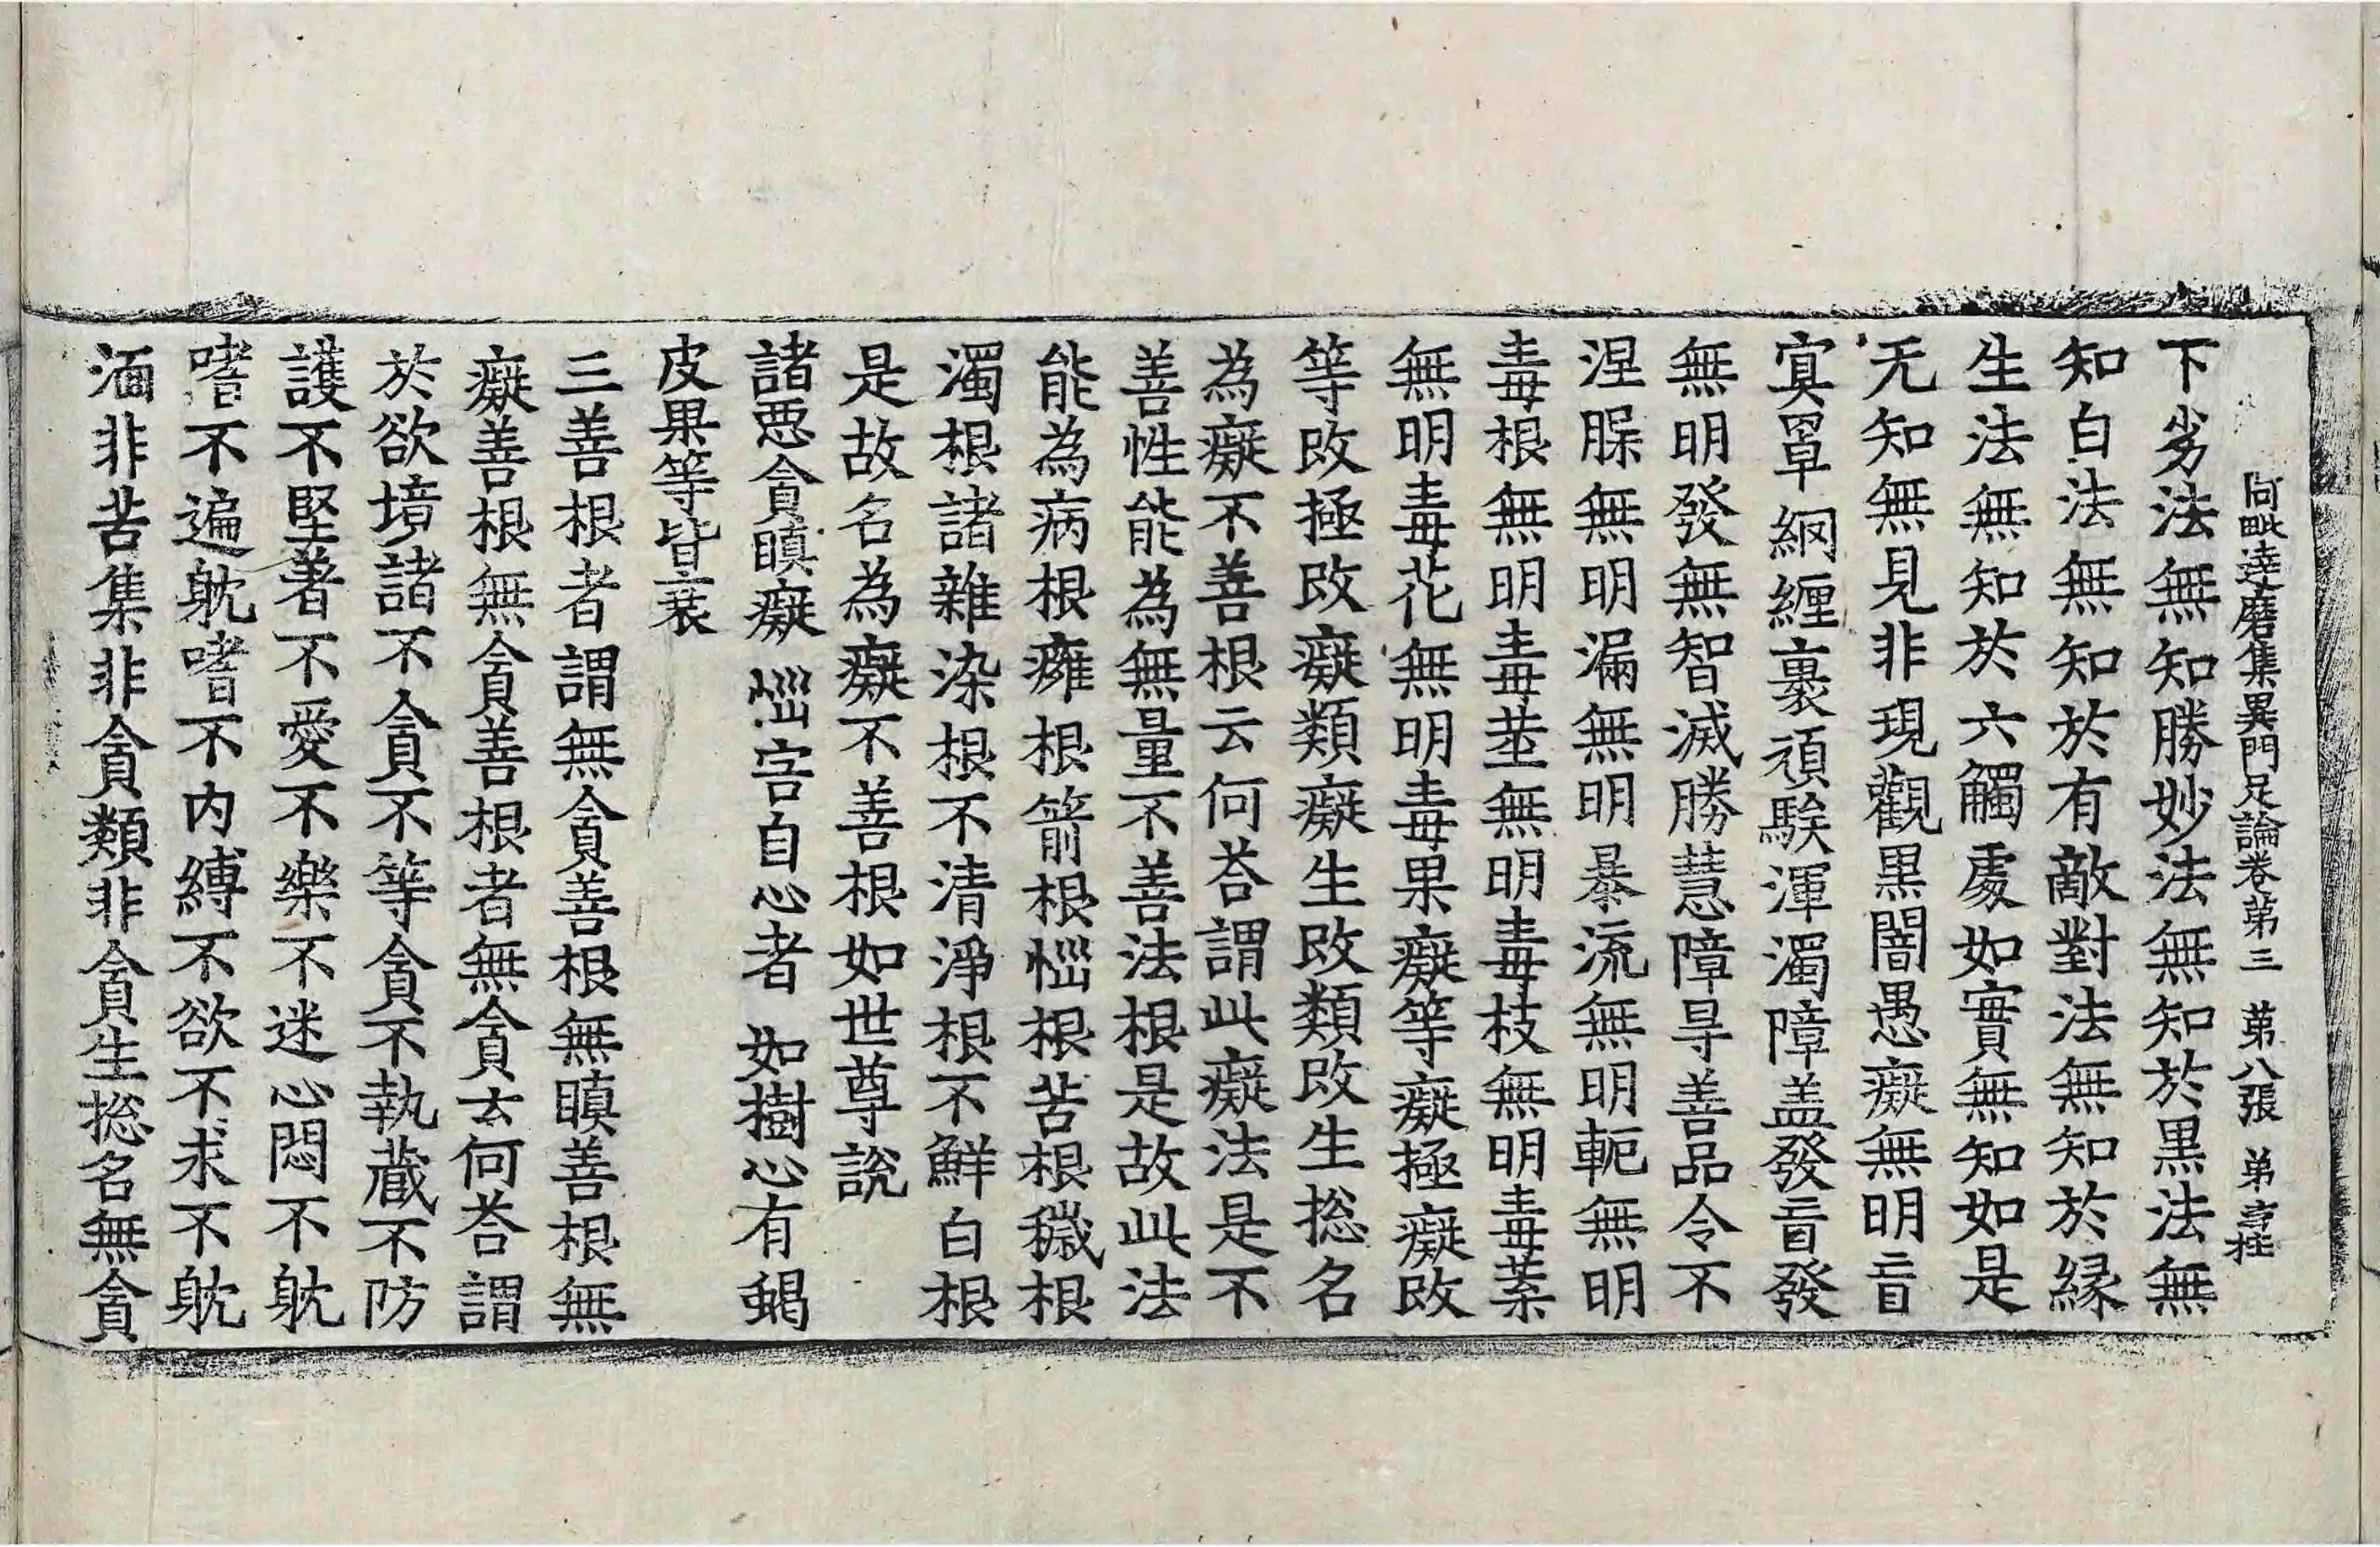 阿毗達磨集異門足論卷第三　第八張　弟
下劣法無知勝妙法無知於黒法無
知白法無知於有敵對法無知於縁
生法無知於六觸處如實無知如是
无知無見非現觀黒闇愚癡無明盲
寘罩網纏裹頑騃渾濁障盖發盲發
無明發無智滅勝慧障㝵善品令不
涅槃無明漏無明暴流無明軛無明
毒根無明毒莖無明毒枝無明毒葉
無明毒花無明毒果癡等癡極癡㪅
等㪅極㪅癡類癡生㪅類㪅生捴名
為癡不善根云何荅謂此癡法是不
善性能為無量不善法根是故此法
能為病根癰根箭根惱根苦根穢根
濁根諸雜染根不清淨根不鮮白根
是故名為癡不善根如世尊說
諸惡貪瞋癡　惱害自心者　如樹心有蝎
皮果等皆衰
三善根者謂無貪善根無瞋善根無
癡善根無貪善根者無貪云何荅謂
於欲境諸不貪不等貪不執藏不防
護不堅著不愛不樂不迷心悶不躭
嗜不遍躭嗜不内縛不欲不求不躭
湎非苦集非貪類非貪生捴名無貪